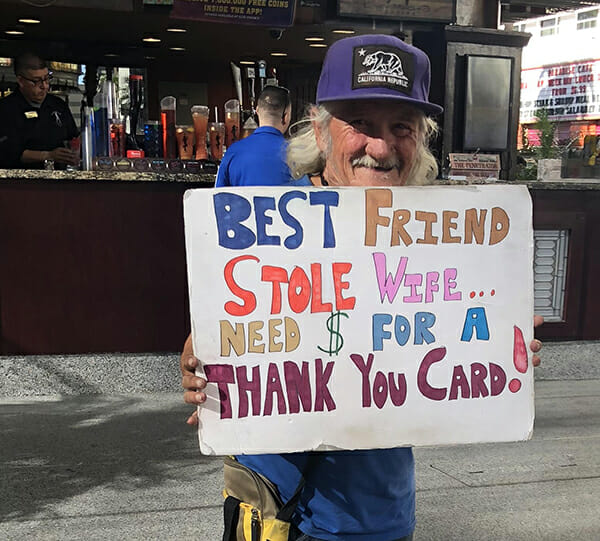 INSIDE THE APP!
CALIFORNIA REPUBLIC
BEST FRIEND
STOLE WIFE...
NEED $ FOR A
THANK YOU CARD!